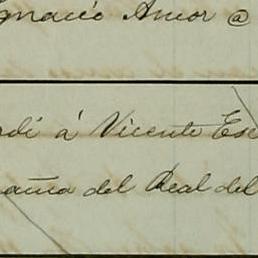 Ignacio Amor @
rdi á Vicente Esc
aña del Real del